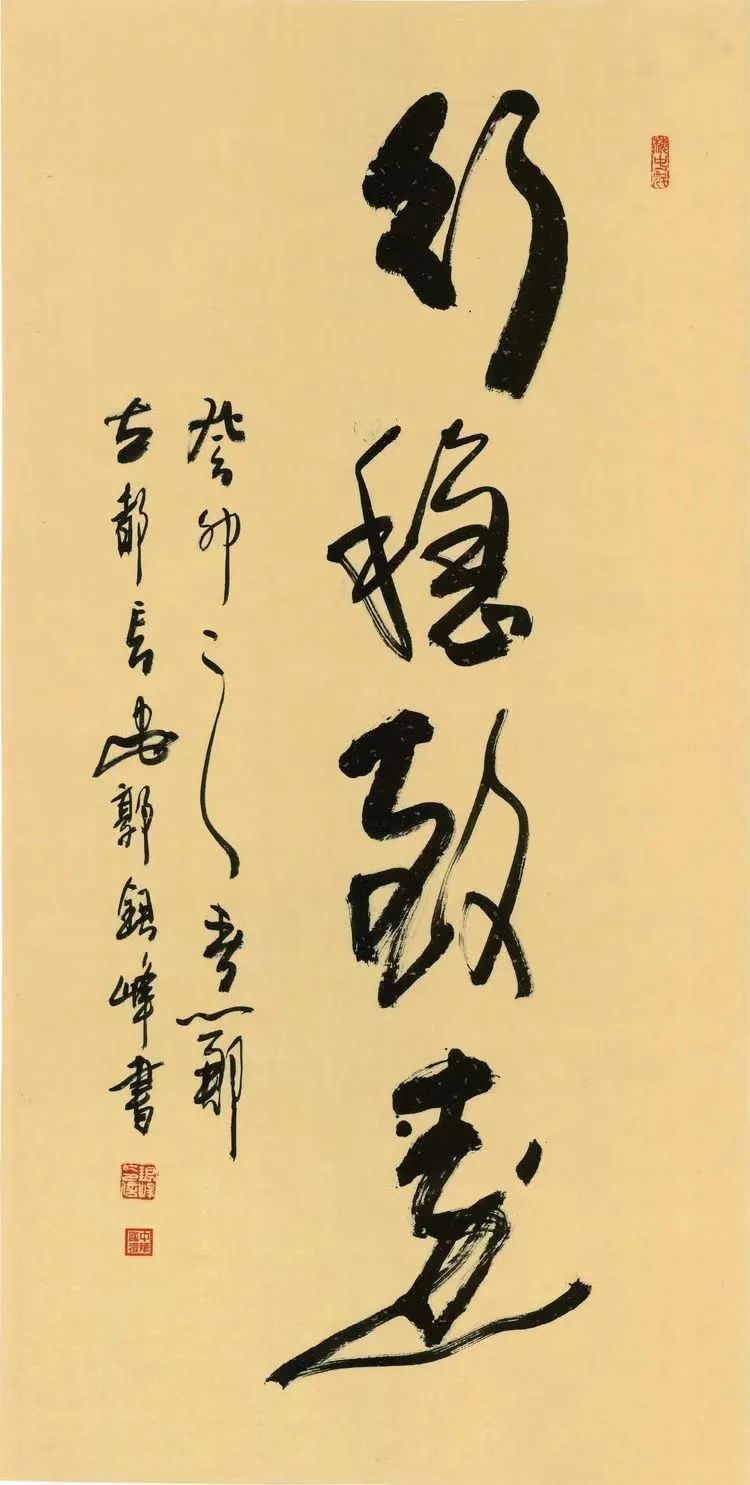 行稳致遠
癸卯之春節
古都長安郭銀峰書